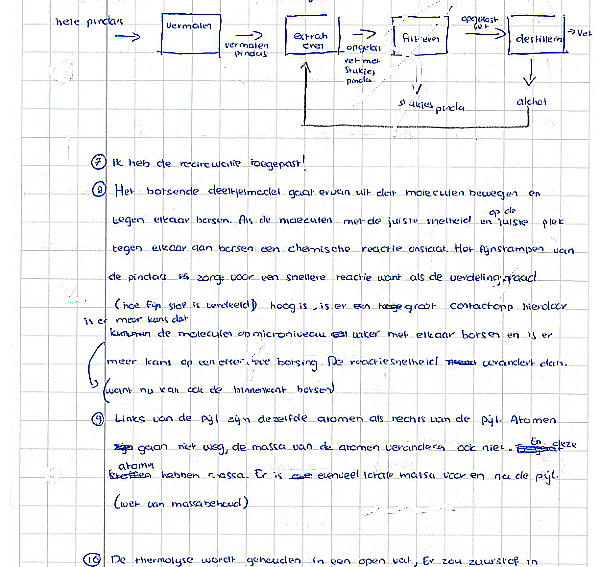 hele pindas
vermalen
vermalen pindas
extraheren
vet met stukjes pinda
filtreren
opgelost vet
destilleren
vet
stukjes pinda
alchol
7 Ik heb de recirculatie toegepast!
8 Het botsende deeltjesmodel gaat ervan uit dat moleculen bewegen en
tegen elkaar botsen. Als de moleculen met de juiste snelheid en op de juiste plek
tegen elkaar aan botsen een chemische reactie ontstaat. Het fijnstampen van
de pindas zorgt voor een snellere reactie want als de verdelingsgraad
(hoe fijn stof is verdeeld) hoog is, is er een groot contactopp hierdoor
is er meer kans dat
de moleculen op microniveau vaker met elkaar botsen en is er
meer kans op een effectieve botsing. De reactiesnelheid verandert dan.
(want nu kan ook de binnenkant botsen)
9 Links van de pijl zijn dezelfde atomen als rechts van de pijl. Atomen
gaan niet weg, de massa van de atomen veranderen ook niet. En deze
atomen hebben massa. Er is evenveel totale massa voor en na de pijl.
(wet van massabehoud)
10 De thermolyse wordt gehouden in een open vat, Er zou zuurstof in